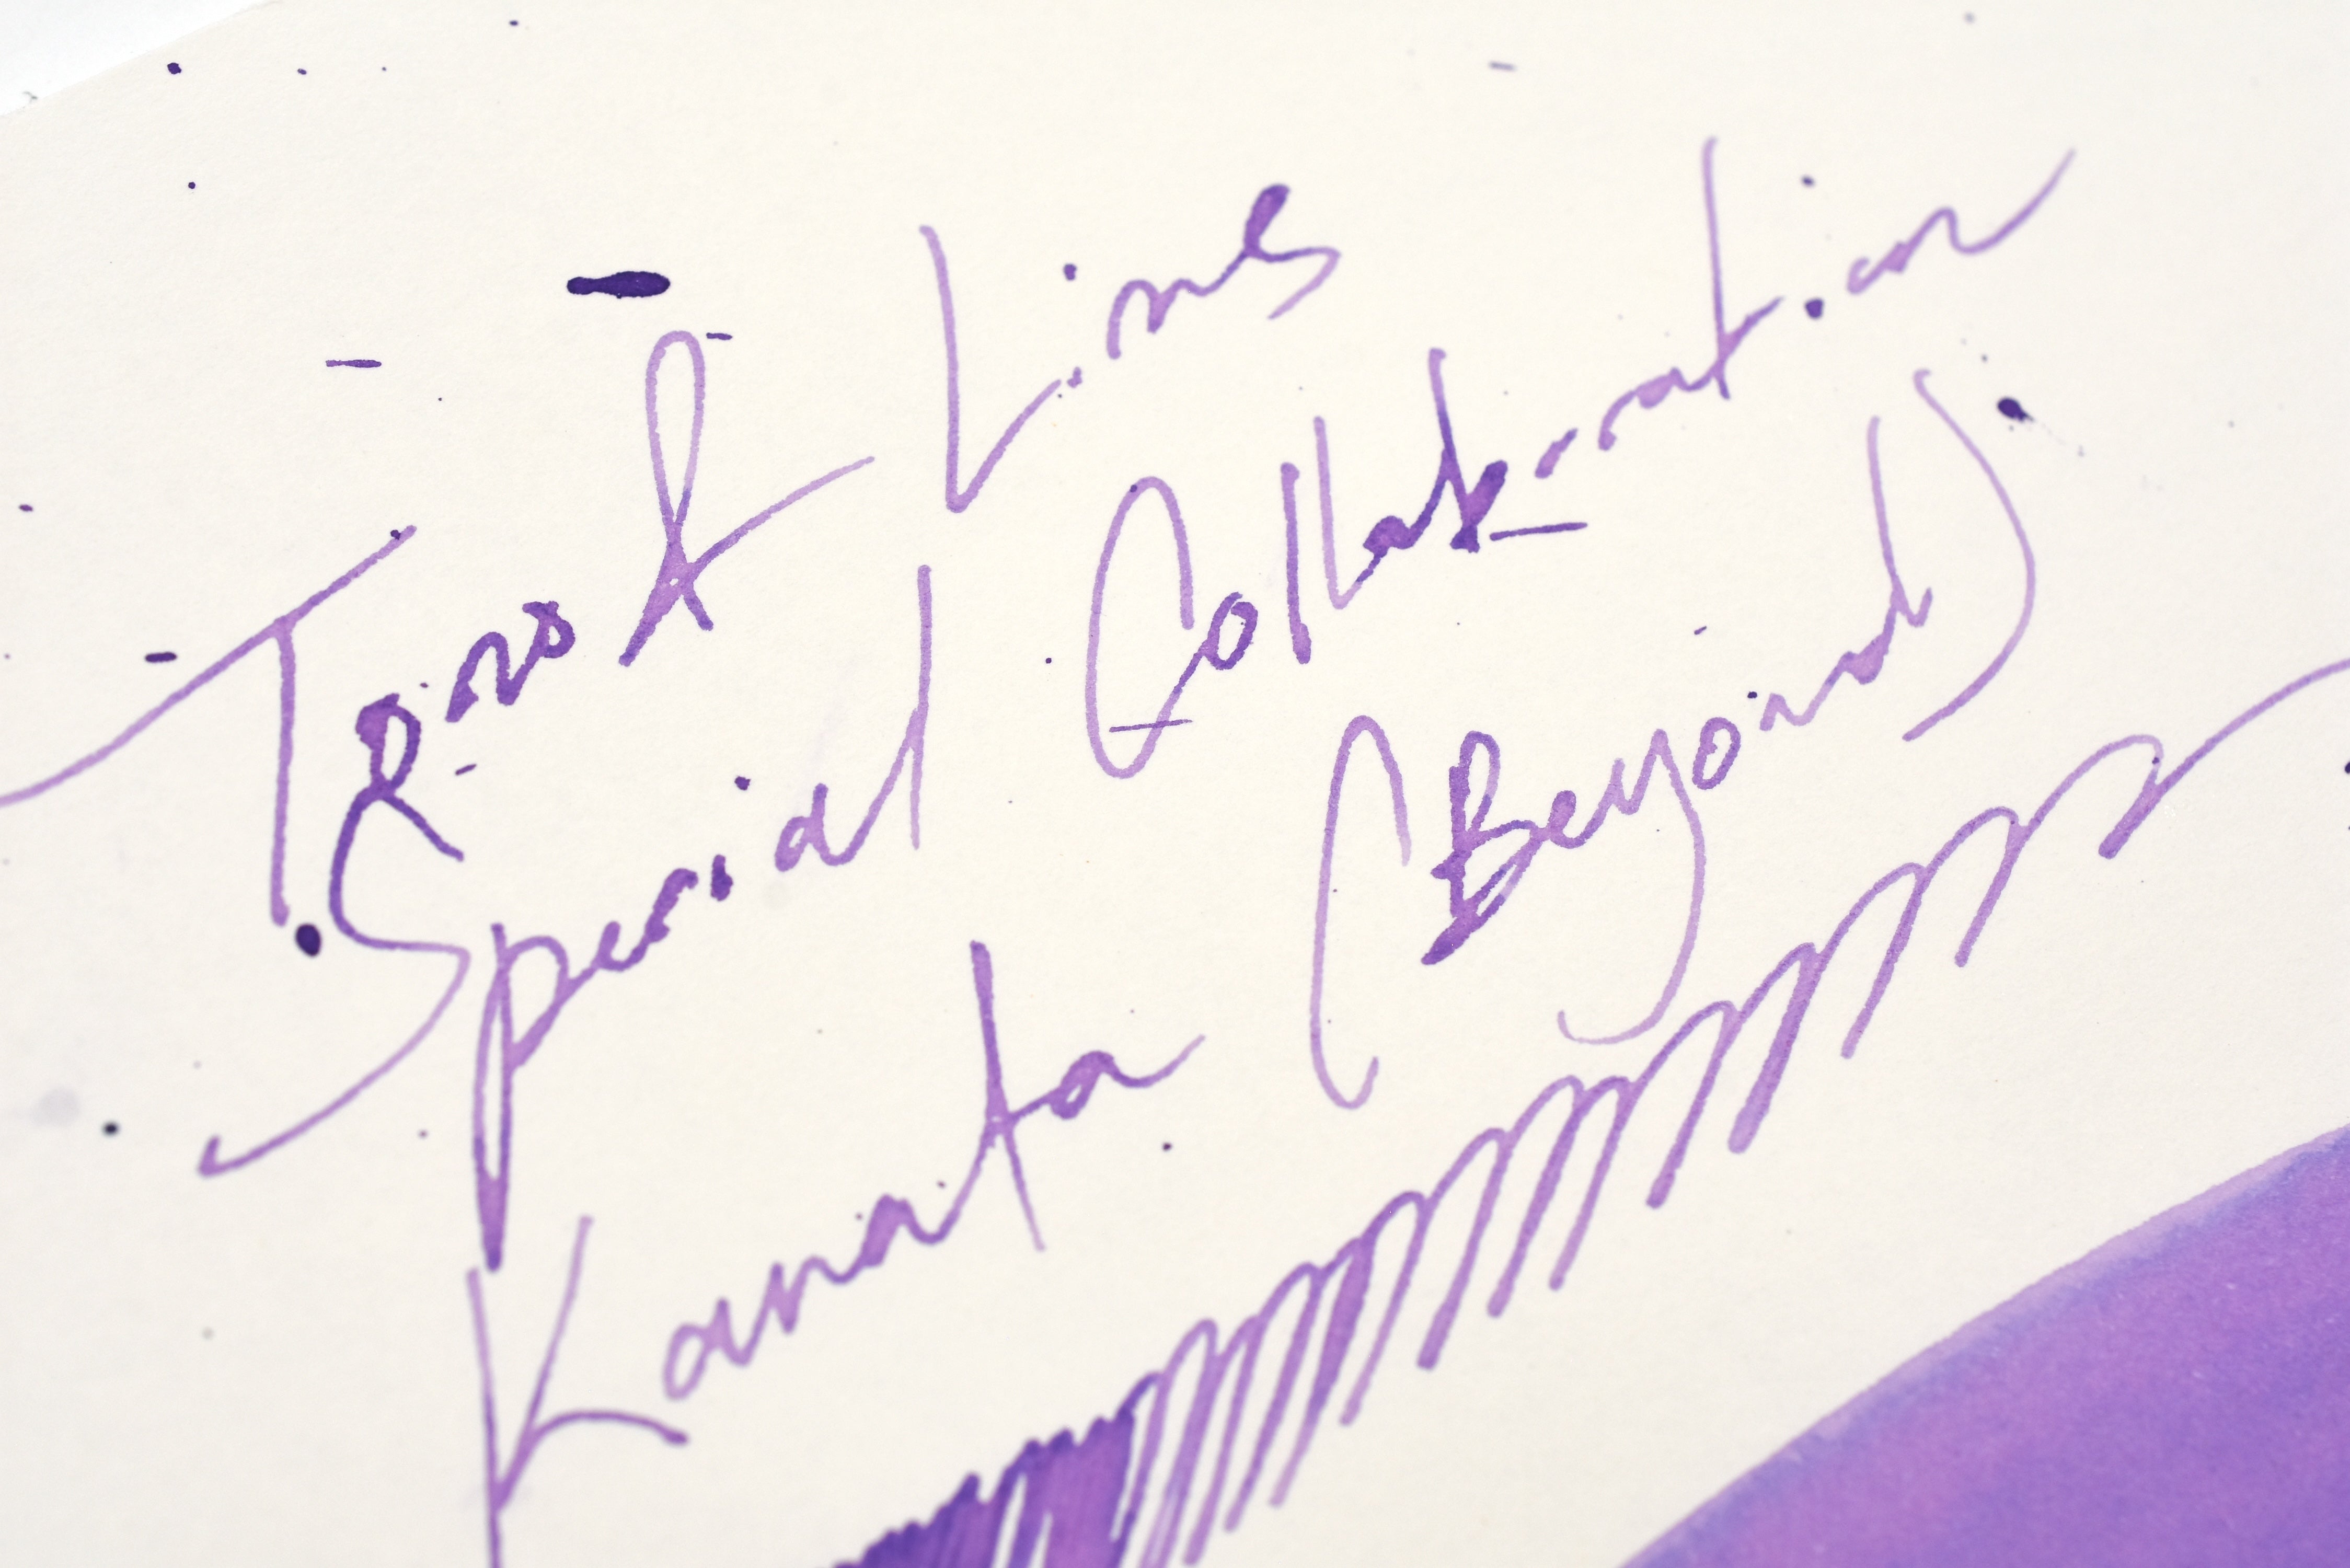 Tono & Lims
Special Collaboration
Kanata (Beyond)